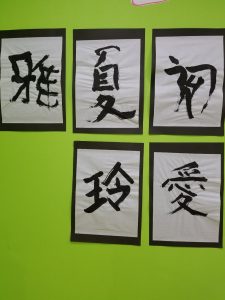 雅夏初
玲愛